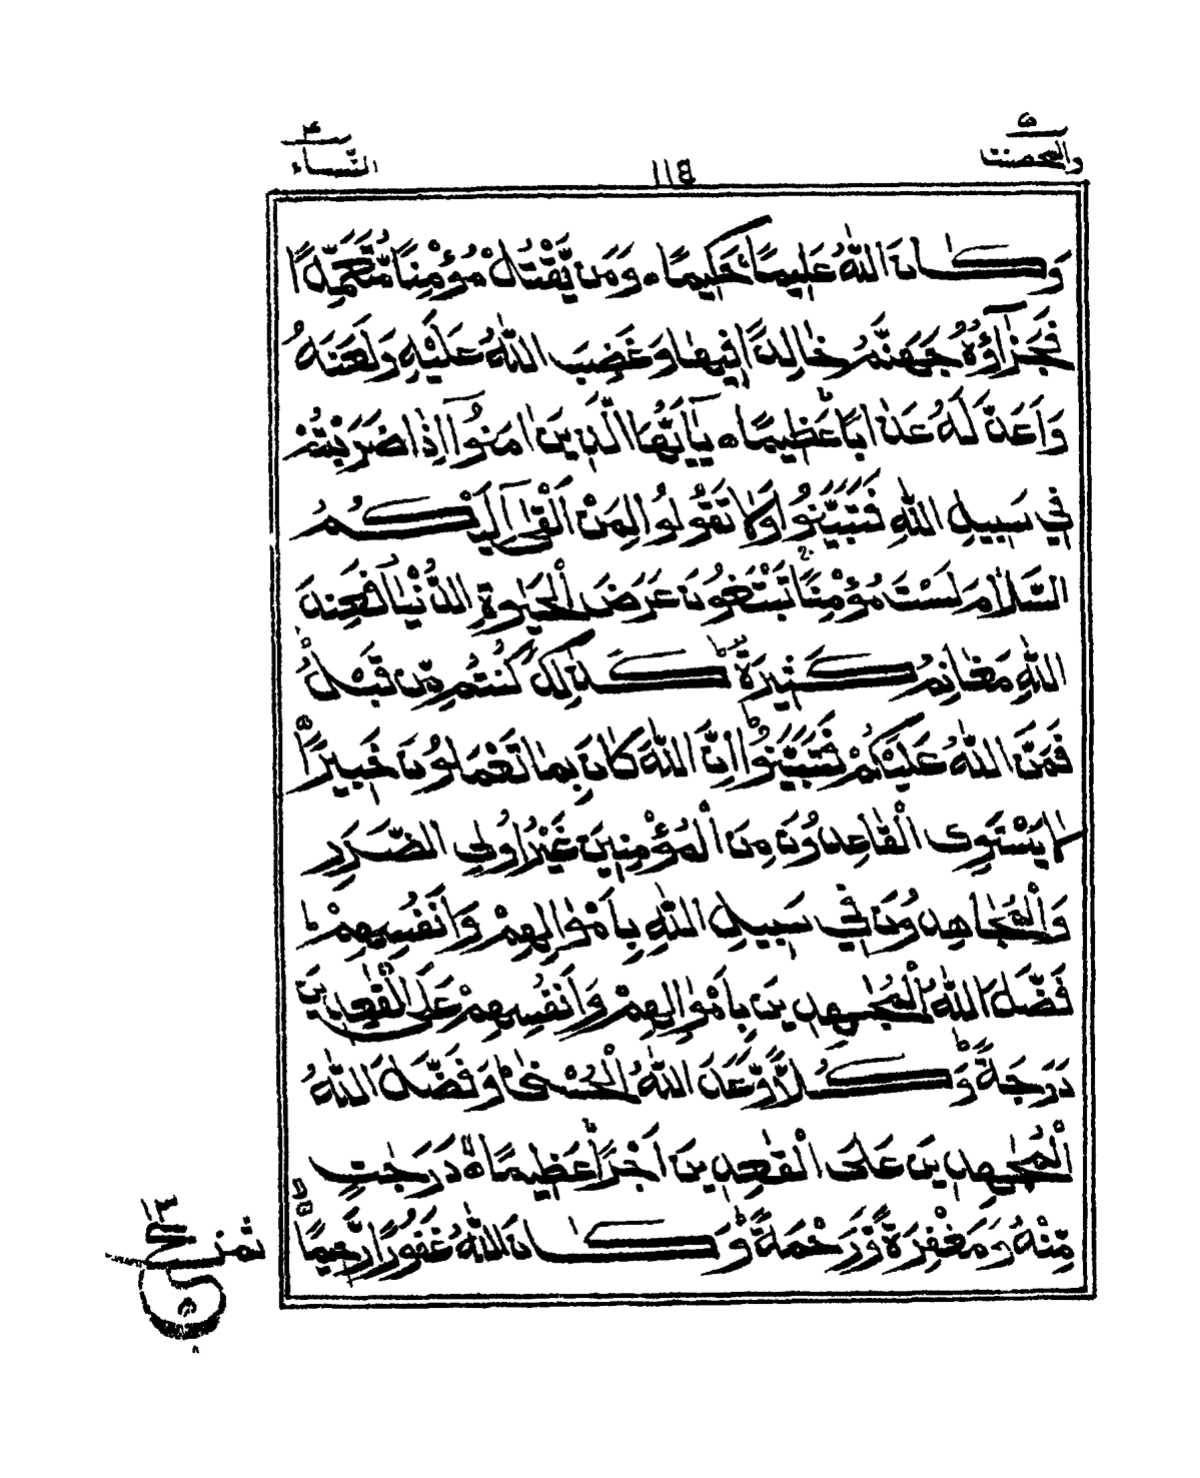 ٥
والمحصنت
١١٤
٤
النّساء
وَكَانَ اللّٰهُ عَلِيمًا حَكِيمًا ۝ وَمَن يَّقْتُلْ مُؤْمِنًا مُّتَعَمِّدًا
فَجَزَآؤُهٗ جَهَنَّمُ خَالِدًا فِيهَا وَغَضِبَ اللّٰهُ عَلَيْهِ وَلَعَنَهٗ
وَاَعَدَّ لَهٗ عَذَابًا عَظِيمًا ۝ يٰٓاَيُّهَا الَّذِينَ اٰمَنُوٓا اِذَا ضَرَبْتُمْ
فِي سَبِيلِ اللّٰهِ فَتَبَيَّنُوا وَلَا تَقُولُوا لِمَنْ اَلْقٰٓى اِلَيْكُمُ
السَّلٰمَ لَسْتَ مُؤْمِنًا تَبْتَغُونَ عَرَضَ الْحَيٰوةِ الدُّنْيَا فَعِندَ
اللّٰهِ مَغَانِمُ كَثِيرَةٌ ؕ كَذٰلِكَ كُنتُم مِّن قَبْلُ
فَمَنَّ اللّٰهُ عَلَيْكُمْ فَتَبَيَّنُوا ؕ اِنَّ اللّٰهَ كَانَ بِمَا تَعْمَلُونَ خَبِيرًا ۝
لَا يَسْتَوِى الْقَاعِدُونَ مِنَ الْمُؤْمِنِينَ غَيْرُ اُولِي الضَّرَرِ
وَالْمُجَاهِدُونَ فِي سَبِيلِ اللّٰهِ بِاَمْوَالِهِمْ وَاَنفُسِهِمْ ؕ
فَضَّلَ اللّٰهُ الْمُجٰهِدِينَ بِاَمْوَالِهِمْ وَاَنفُسِهِمْ عَلَى الْقٰعِدِينَ
دَرَجَةً ؕ وَكُلًّا وَّعَدَ اللّٰهُ الْحُسْنٰى ؕ وَفَضَّلَ اللّٰهُ
الْمُجٰهِدِينَ عَلَى الْقٰعِدِينَ اَجْرًا عَظِيمًا ۝ دَرَجٰتٍ
مِّنْهُ وَمَغْفِرَةً وَّرَحْمَةً ؕ وَكَانَ اللّٰهُ غَفُورًا رَّحِيمًا ۝
١٣
ثمن